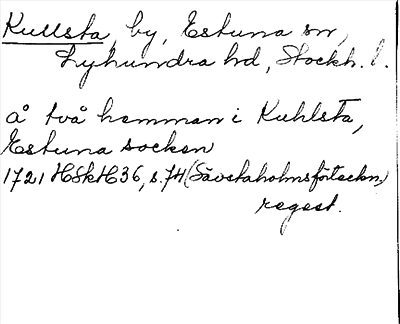 Kullsta, by, Estuna sn,
Lyhundra hd, Stockh. l.
å två hemman i Kuhlsta,
Estuna socken
1721 HSkH 36, s. 74 (Sävstaholmsförteckn.)
regest.